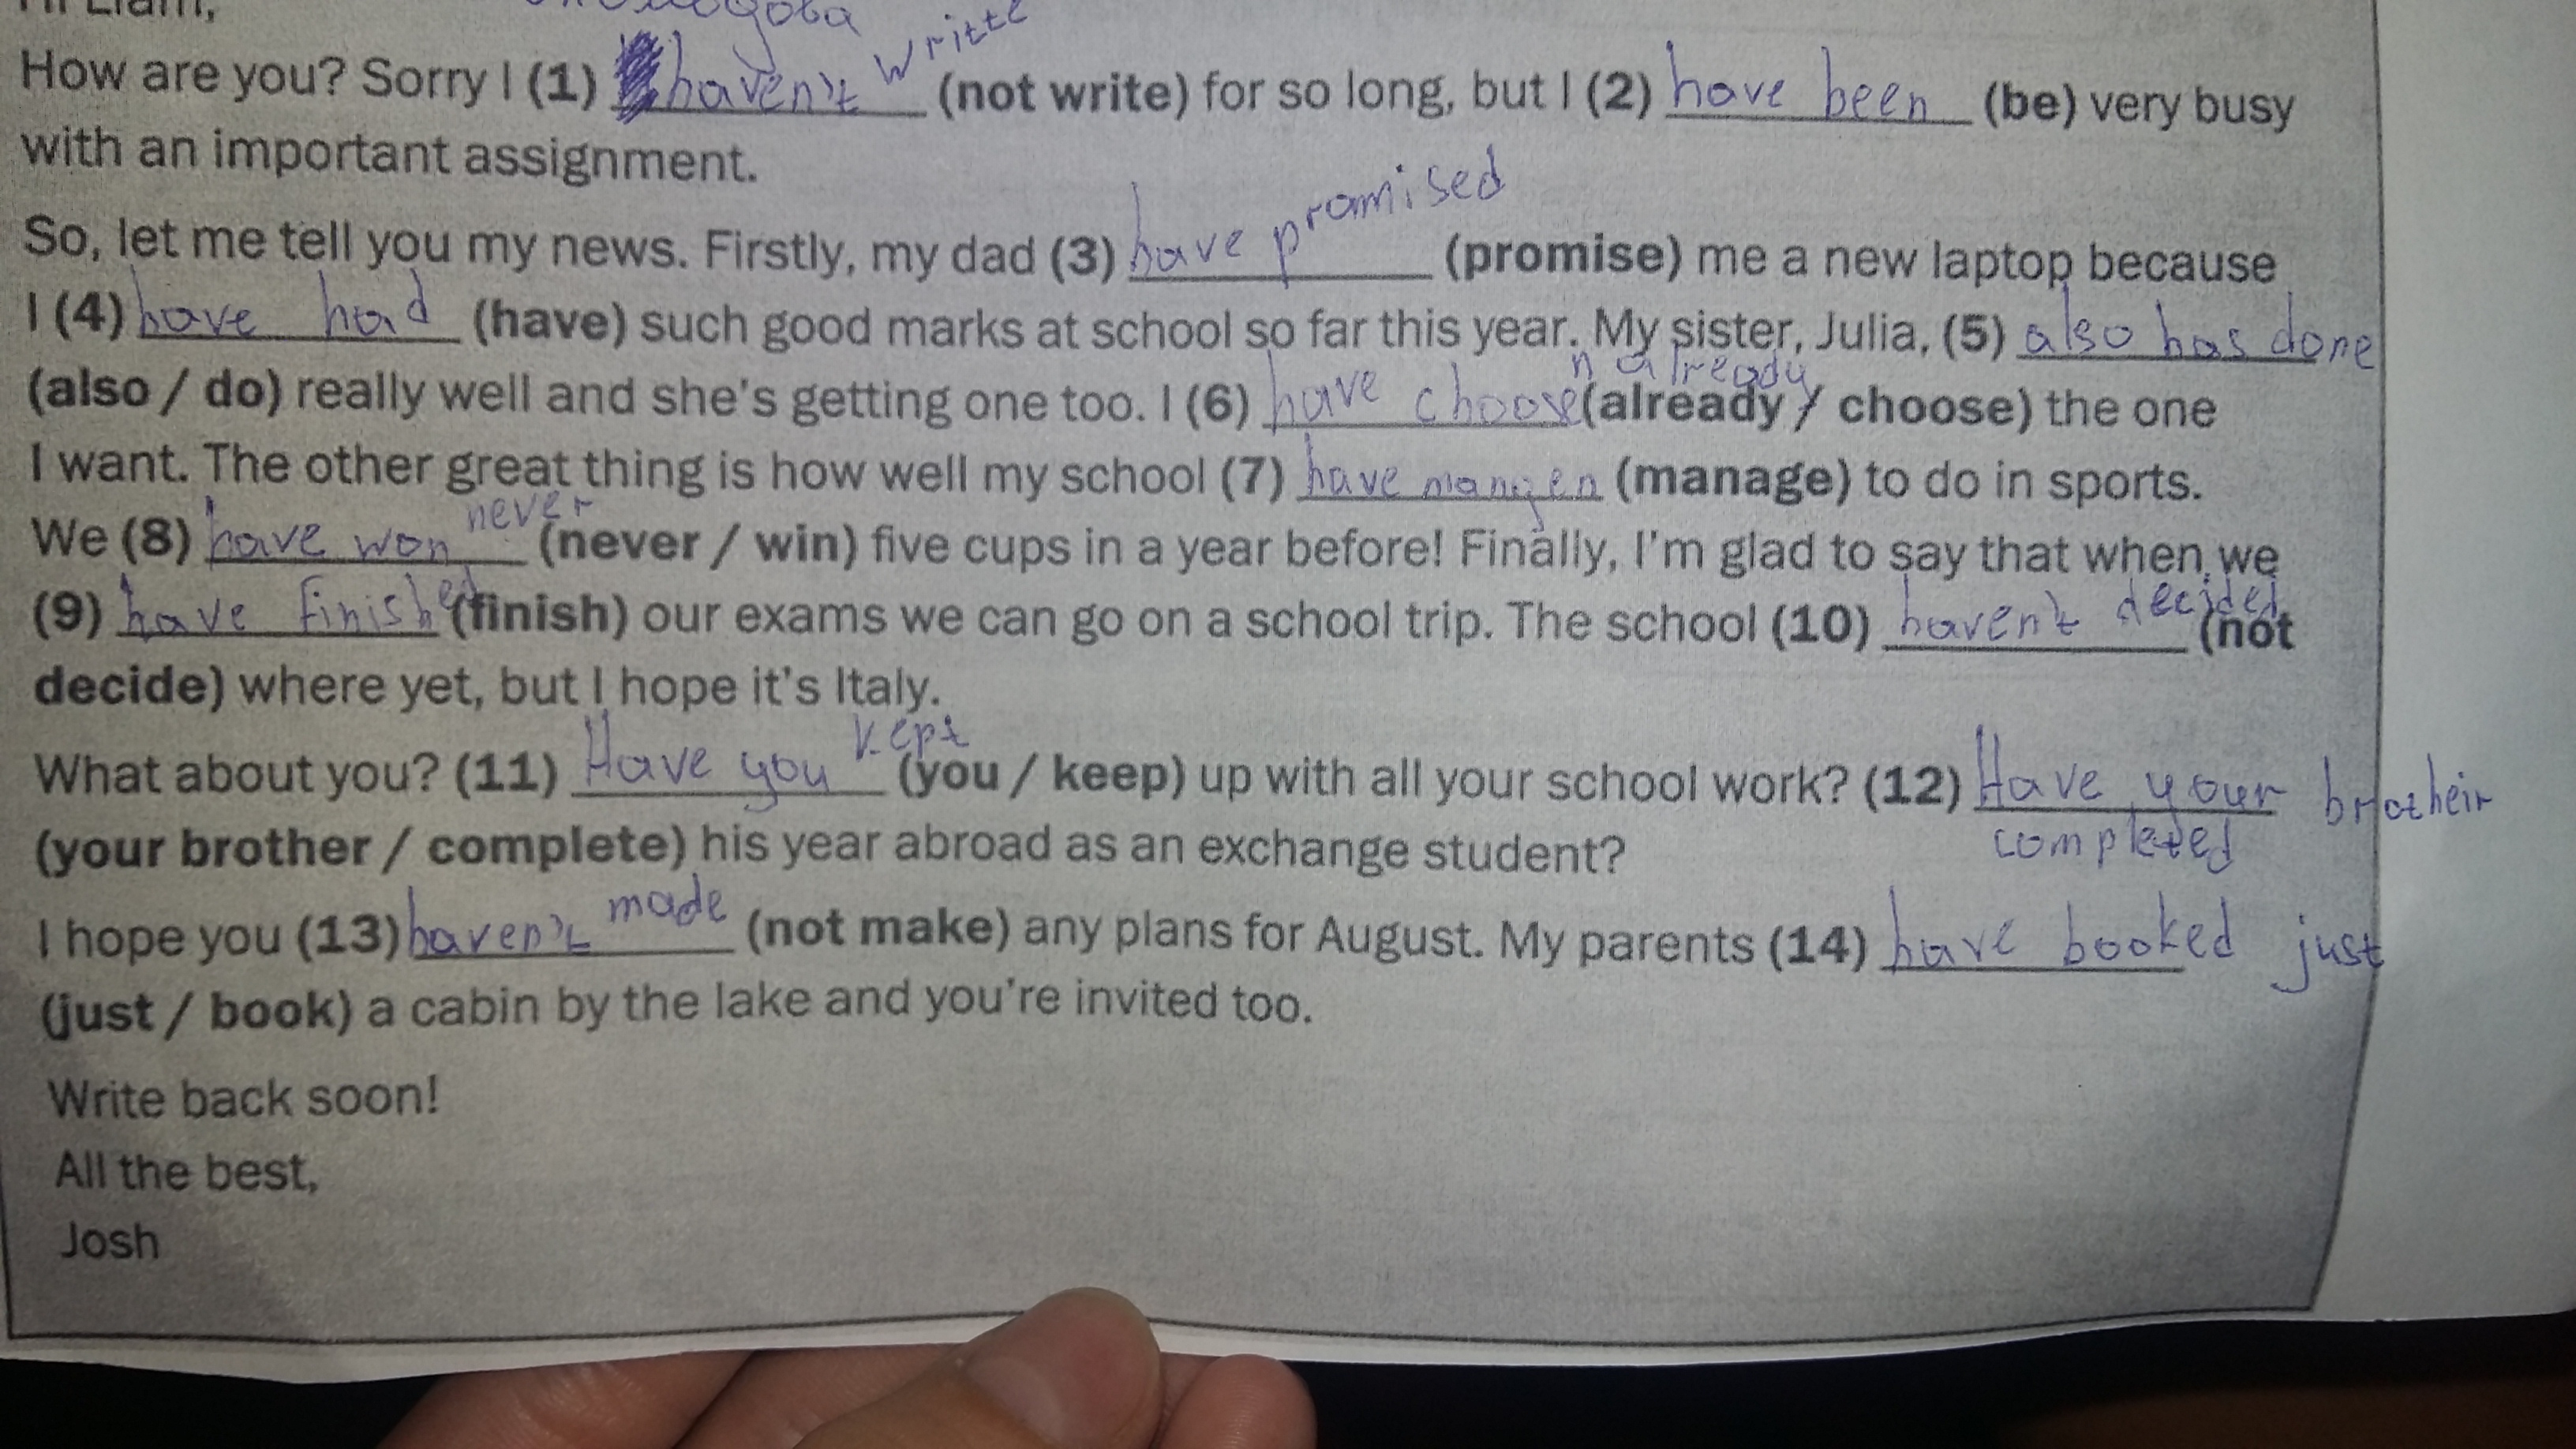 Hi Liam,
How are you? Sorry I (1) haven't writte (not write) for so long, but I (2) have been (be) very busy
with an important assignment.
So, let me tell you my news. Firstly, my dad (3) have promised (promise) me a new laptop because
I (4) have had (have) such good marks at school so far this year. My sister, Julia, (5) also has done
(also / do) really well and she's getting one too. I (6) have choosen already (already / choose) the one
I want. The other great thing is how well my school (7) have mangen (manage) to do in sports.
We (8) have won never (never / win) five cups in a year before! Finally, I'm glad to say that when we
(9) have finished (finish) our exams we can go on a school trip. The school (10) haven't decided (not
decide) where yet, but I hope it's Italy.
What about you? (11) Have you kept (you / keep) up with all your school work? (12) Have your brotheir
completed
(your brother / complete) his year abroad as an exchange student?
I hope you (13) haven't made (not make) any plans for August. My parents (14) have booked just
(just / book) a cabin by the lake and you're invited too.
Write back soon!
All the best,
Josh